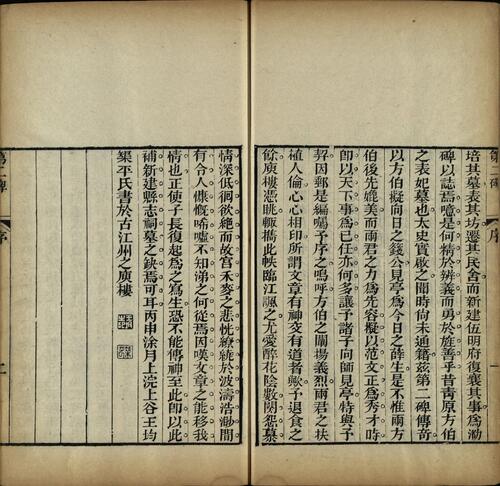 第二碑 序 一
培其墓表其坊遷其民舍而新建伍明府復襄其事爲泐
碑以誌焉噫是何精於辨義而勇於旌善乎昔靑原方伯
之表妃墓也太史實啟之聞時尙未通籍茲第二碑傳奇
以方伯擬向日之錢令見亭爲今日之薛生是不惟兩方
伯後先媲美而雨君之力爲先容擬以范文正爲秀才時
卽以天下事爲己任亦何多讓予諸子向師見亭特與予
契因郵是編囑予序之嗚呼方伯之闡揚義烈雨君之扶
植人倫心心相印所謂文章有神交有道者歟予退食之
餘庾樓憑眺輒撟此帙臨江諷之尤愛醉花陰數闋怨慕
情深低徊欲絶而故宮禾黍之悲恍繚繞於波濤浩渺間
有令人慷慨唏噓不知涕之何從焉因嘆文章之能移我
情也正使子長復起爲之寫生恐不能傳神至此卽以此
補新建縣志祠墓之缺焉可耳丙申涂月上浣上谷王均
榘平氏書於古江州之庾樓
第二碑 序 二